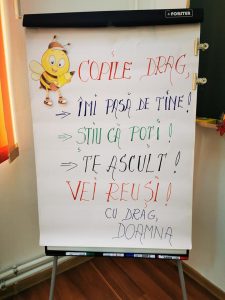 FORSTER
COPILE DRAG,
→ ÎMI PASĂ DE TINE!
→ ȘTIU CĂ POȚI!
→ TE ASCULT!
VEI REUȘI!
CU DRAG,
DOAMNA